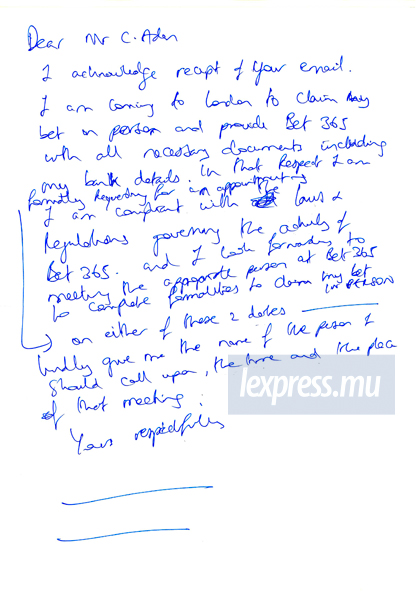 Dear Mr C. Adan
I acknowledge receipt of your email.
I am coming to London to claim my
bet in person and provide Bet 365
with all necessary documents including
my bank details. in that Respect I am
formally Requesting for an appointment
I am compliant with the laws &
Regulations governing the activity of
Bet 365. and I look forward to
meeting the appropriate person at Bet 365
to complete formalities to claim my bet
IN PERSON
on either of these 2 dates
kindly give me the name of the person I
should call upon, the time and the place
of that meeting.
Yours respectfully
lexpress.mu